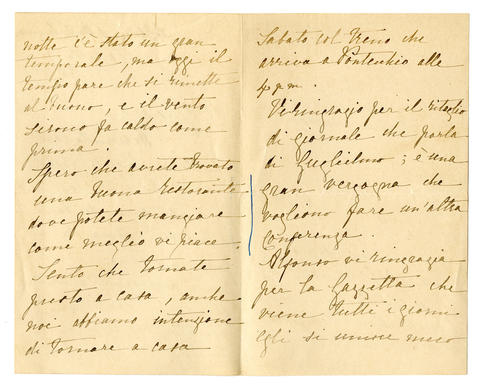 notte c'è stato un gran
temporale, ma oggi il
tempo pare che si rimette
al buono, e il vento
sirono fa caldo come
prima.
Spero che avrete trovato
una buona ristorante
dove potete mangiare
come meglio vi piace.
Sento che tornate
presto a casa, anche
noi abbiamo intenzione
di tornare a casa
Sabato col treno che
arriva a Pontecchio alle
4 p.m.
Vi ringrazio per il ritaglio
di giornale che parla
di Guglielmo; è una
gran vergogna che
vogliono fare un'altra
conferenza.
Alfonso vi ringrazia
per la Gazzetta che
viene tutti i giorni
egli si unisce meco